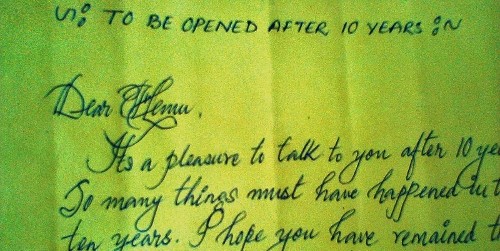 TO BE OPENED AFTER 10 YEARS
Dear Hemu,
Its a pleasure to talk to you after 10 ye
So many things must have happened in t
ten years. I hope you have remained t